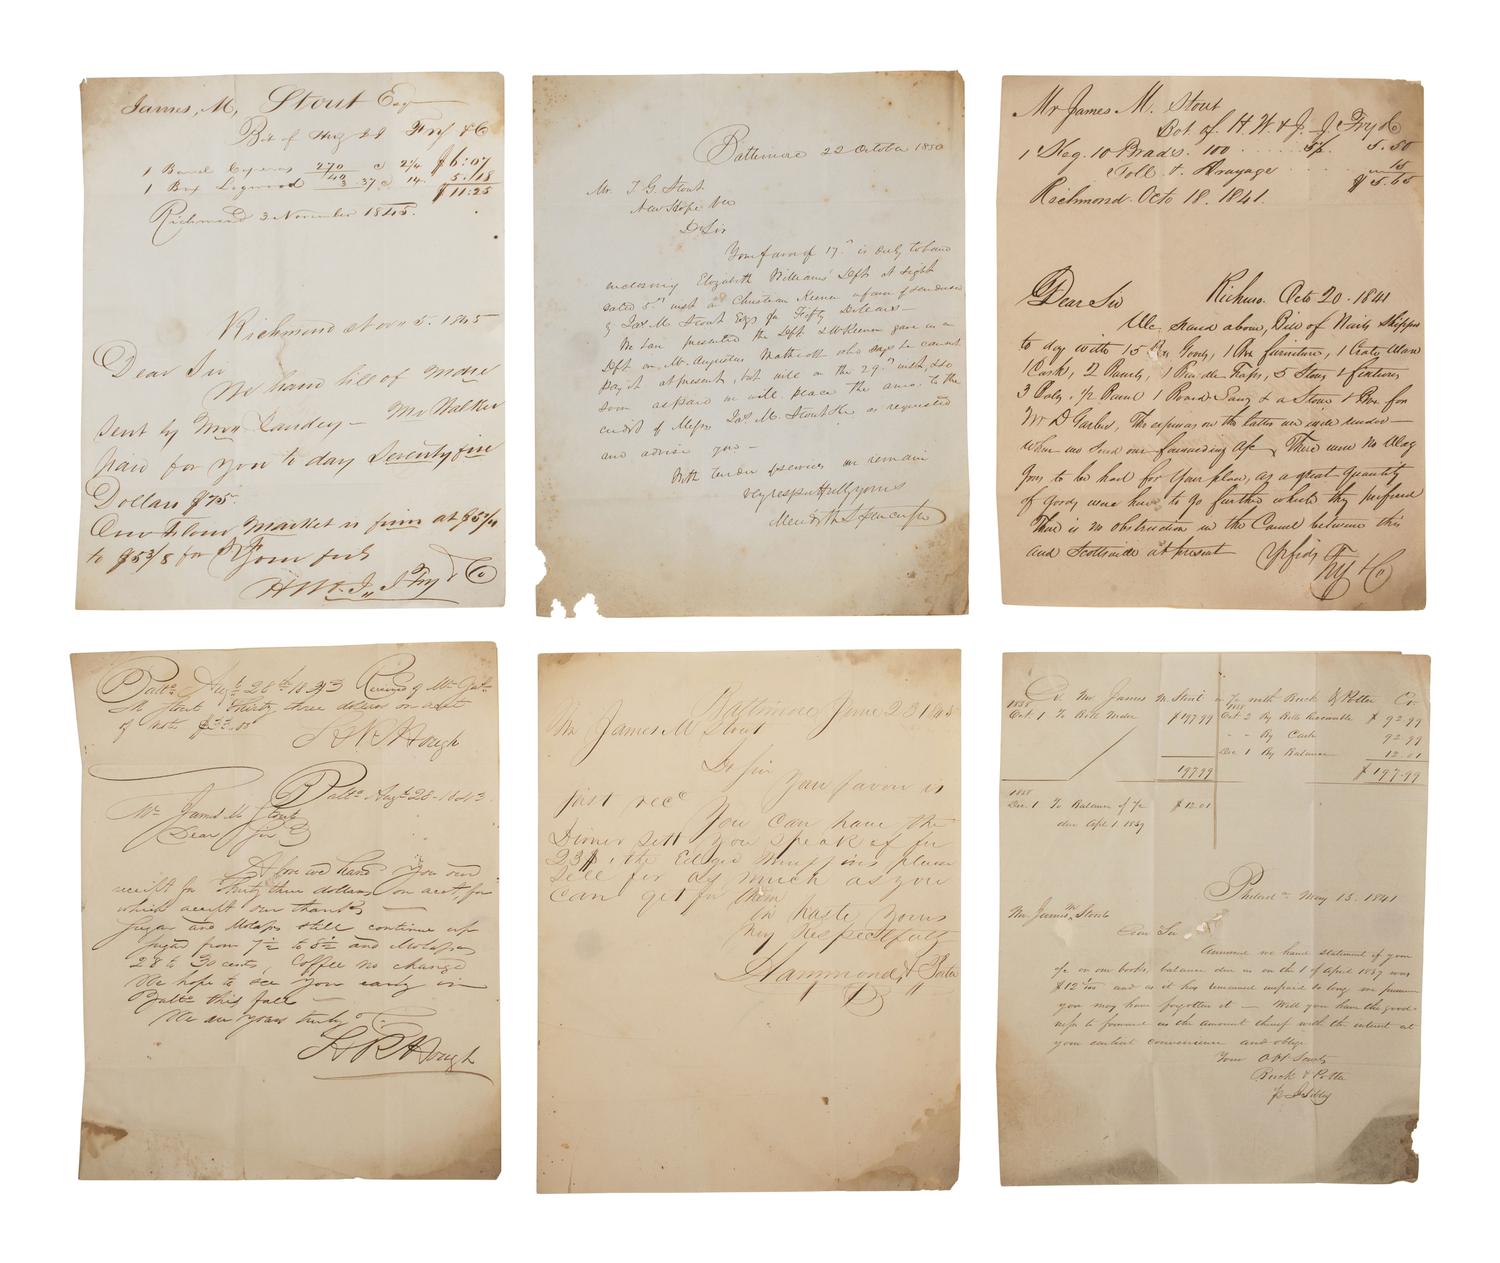 James, M, Stout Esq
Bot of Fry & Co
1 Barrel Coperas 270 2¼ $6:07
1 Box Logwood 40 37 @ 14 5.18
$11.25
Richmond 3 November 1845.
Richmond Nov 5. 1845
Dear Sir
We hand bill of Mdse
sent by Landey — Mr Walker
paid for you to day Seventy five
Dollars $75.
Our Flour Market is firm at
to $5 3/8 for
H W & J. J Fry & Co
Baltimore 22 October 1850
Mr. T G. Stout
New Hope Va
D Sir
Your favor of 17th is duly to hand
enclosing Elizabeth Williams Dft at sight
dated 5th inst on Christian Keener
of Jas M. Stout Esq for Fifty Dollars —
We have presented the Dft & Keener gave us a
Dft on Mr Augustus Mathiott who says he cannot
pay it at present, but will on the 29th inst, &
soon as paid we will place the amt. to the
credit of Messrs Jas. M. Stout & Co as requested
and advise you —
With tender of services we remain
very respectfully yours
Meredith Spencer & Co
Mr James M. Stout
Bot. of H W. & J. J Fry & Co
1 Keg. 10 Brads. 100 5½ 5.50
Toll & Drayage 15
$5.65
Richmond Octo 18. 1841.
Dear Sir Richmo. Octo 20. 1841
We hand above, Bill of Nails shipped
to day with 15 Goods, 1 Box furniture, 1 Crate Ware
1 Cask, 2 1 Bundle Traps, 5 Stoves & fixtures,
3 ½ Barrel 1 & a Stove & Box for
Mr D Garber, The expenses on the latter are inside under —
when we send our forwarding a/c. There were no Wag
gons to be had for your place, as a great quantity
of goods were here to go further which they preferred
There is no obstruction in the Canal between this
and Scottsville at present Yrs
Fry & Co
Balto. Augt 28th 1843 Received of Mr Jas
M Stout Thirty three dollars on acct
of note $33.00
S & R Hough
Balto Augt 28. 1843
Mr James M Stout
Dear Sir
Above we hand you our
receipt for Thirty three dollars on acct, for
which accept our thanks —
Sugar and Molasses still continue up
Sugar from 7½ to 8½ and Molasses
28 to 30 cents, Coffee no change
We hope to see you early in
Balto this fall —
We are yours truly
S & R Hough
Baltimore June 23 1845
Mr James M Stout
Dr Sir
Your favor is
just recd You can have the
Dinner sett you speak of for
23$, the Edged Muffins please
sell for as much as you
can get for them
In haste Yours
Very Respectfully
Hammond & Porter
Dr. Mr James M. Stout in a/c with Buck & Potter Cr.
1838
Oct 1 To Bill Mdse $197.99 Oct 2 By Bills Receivable $92.99
" " By Cash 92.99
Dec 1 By Balance 12.01
197.99 $197.99
1838
Dec. 1 To Balance of a/c $12.01
due Apl 1 1839
Philada May 15. 1841
Mr. James M. Stout
Dear Sir
Annexed we hand statement of your
a/c on our books, balance due us on the 1 of April 1839 was
$12 1/100 and as it has remained unpaid so long we presume
you may have forgotten it — Will you have the good-
ness to forward us the amount thereof with the interest at
your earliest convenience and oblige
Your Obt Servts
Buck & Potter